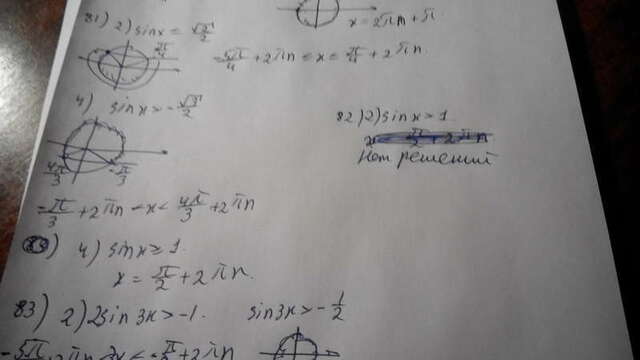 x = 2πn + π
81) 2) sin x ≤ √2/2
π/4
-5π/4 + 2πn ≤ x ≤ π/4 + 2πn
4) sin x > -√3/2
4π/3
-π/3
-π/3 + 2πn < x < 4π/3 + 2πn
82) 2) sin x > 1
Нет решений
4) sin x ≥ 1
x = π/2 + 2πn.
83) 2) 2sin 3x > -1.
sin 3x > -1/2